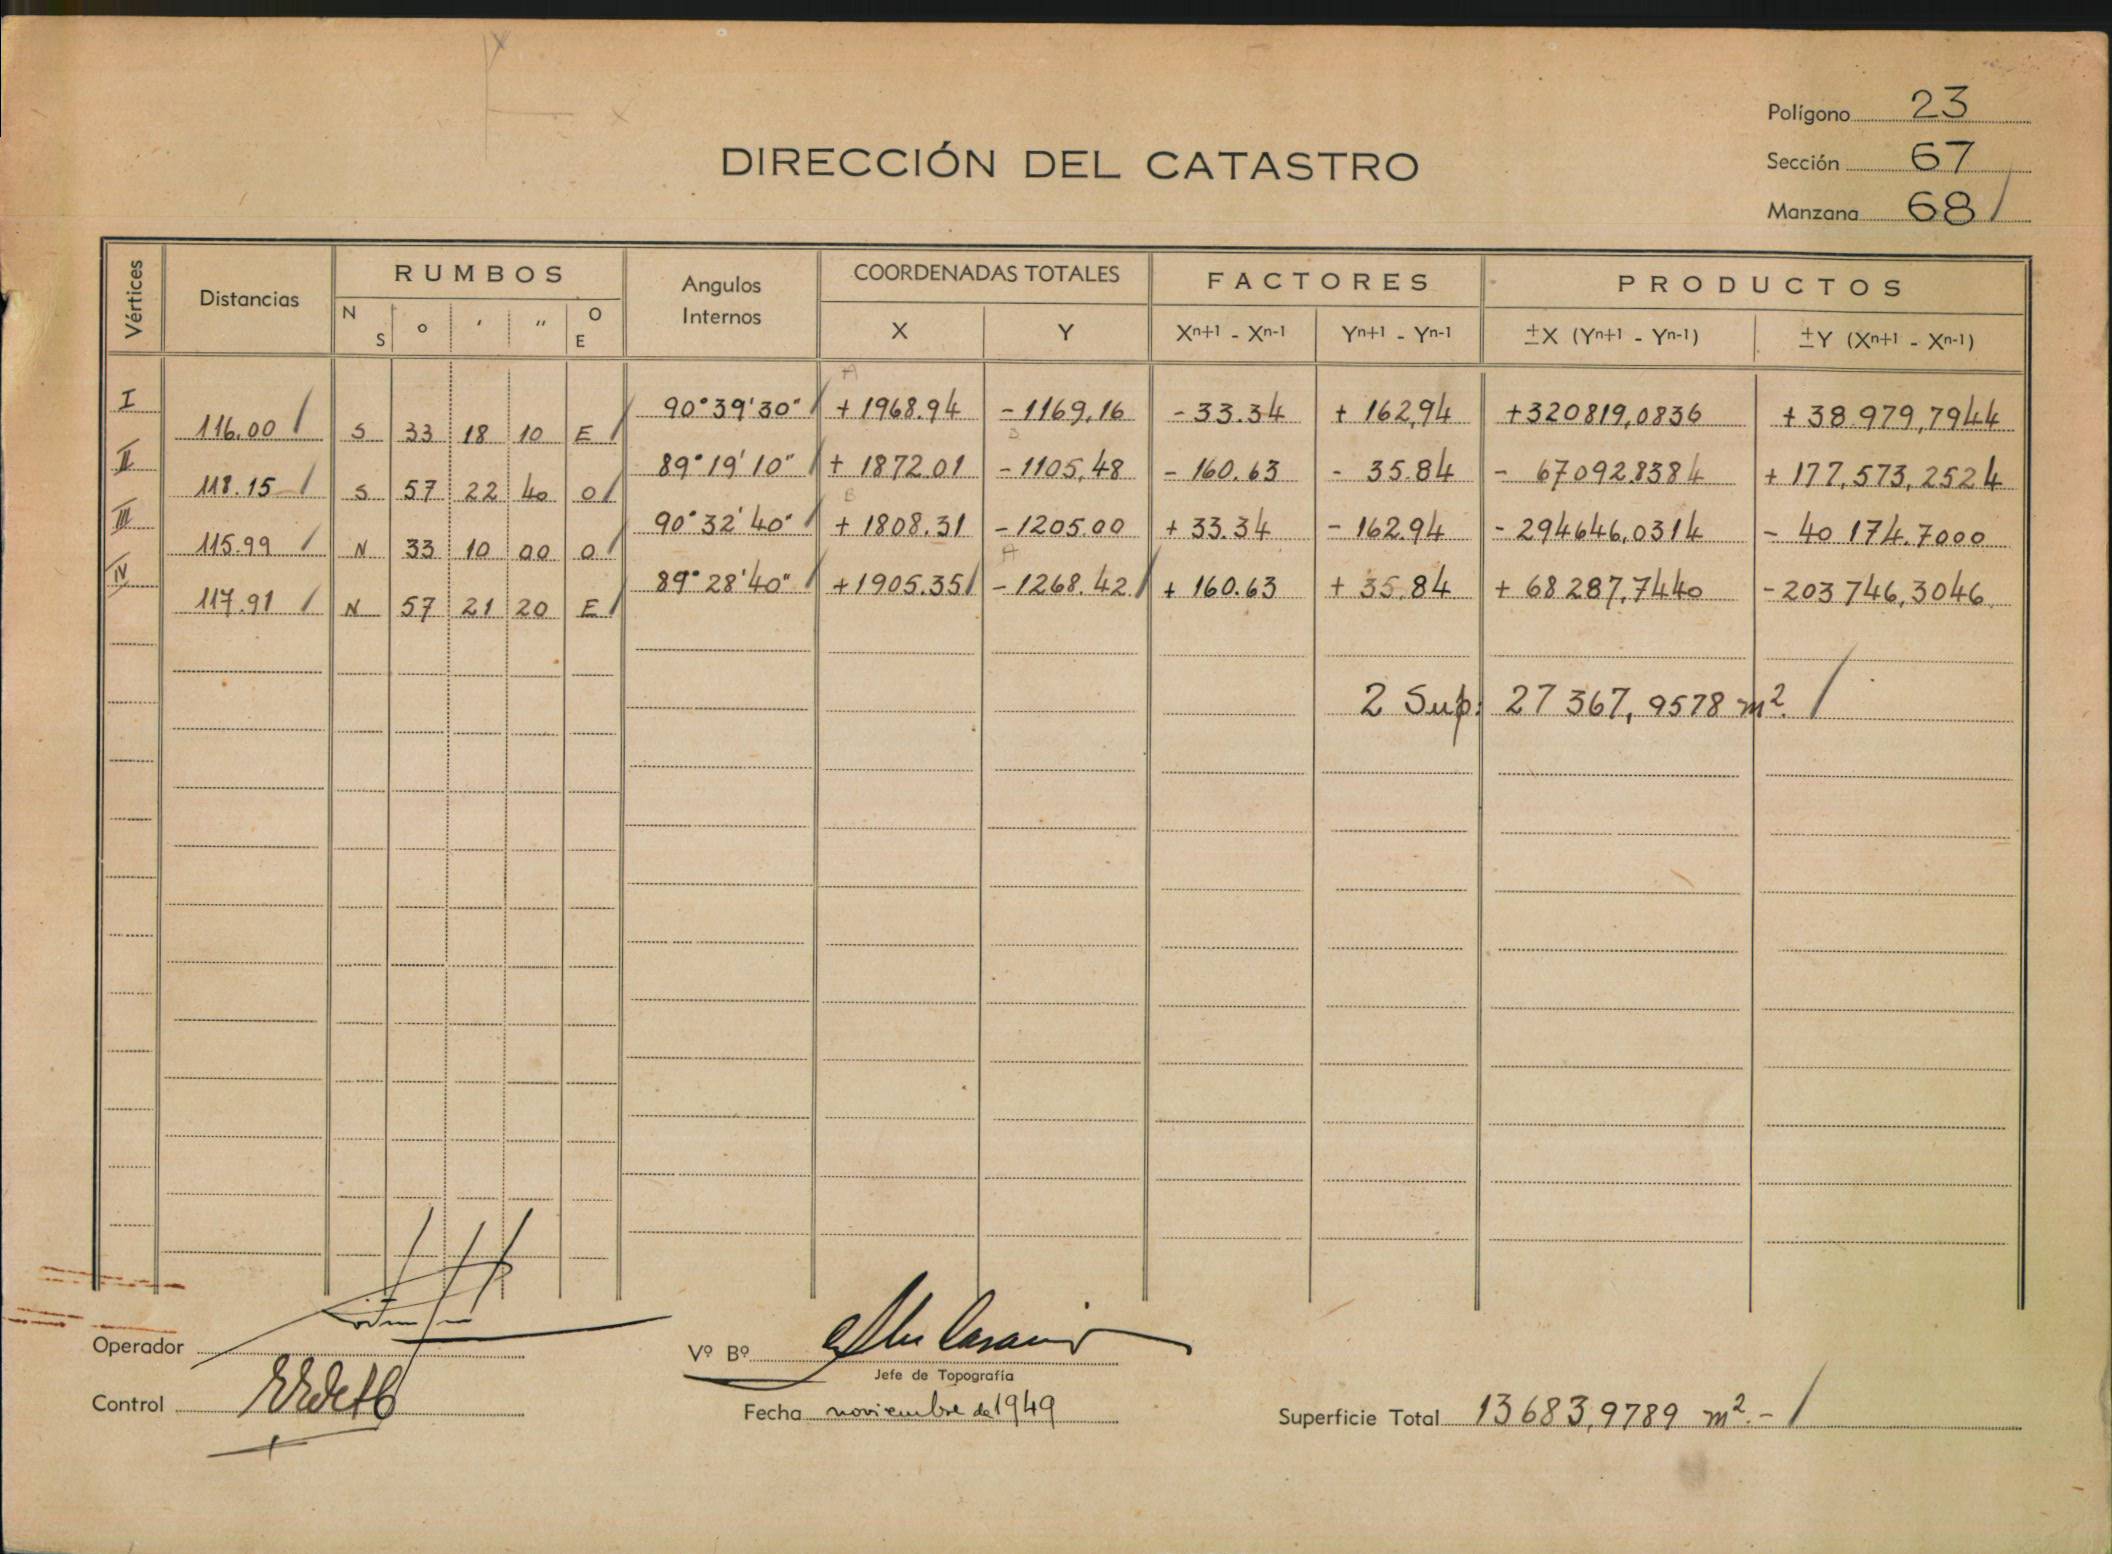 Polígono 23
DIRECCIÓN DEL CATASTRO
Sección 67
Manzana 68
Vértices Distancias RUMBOS Angulos Internos COORDENADAS TOTALES FACTORES PRODUCTOS
N S o ʹ ʺ O E X Y Xn+1 - Xn-1 Yn+1 - Yn-1 ±X (Yn+1 - Yn-1) ±Y (Xn+1 - Xn-1)
I 90°39'30" + 1968.94 - 1169,16 - 33.34 + 162,94 +320819,0836 + 38.979,7944
116.00 S 33 18 10 E
II 89°19'10" + 1872.01 - 1105,48 - 160.63 - 35.84 - 67092.8384 + 177,573,2524
118.15 S 57 22 40 O
III 90°32'40" + 1808.31 - 1205.00 + 33.34 - 162.94 - 294646,0314 - 40 174.7000
115.99 N 33 10 00 O
IV 89°28'40" + 1905.35 - 1268.42 + 160.63 + 35,84 + 68287,7440 - 203746,3046
117.91 N 57 21 20 E
2 Sup: 27367,9578 m².
Operador
Vº Bº
Jefe de Topografía
Control
Fecha noviembre de 1949
Superficie Total 13683,9789 m².-